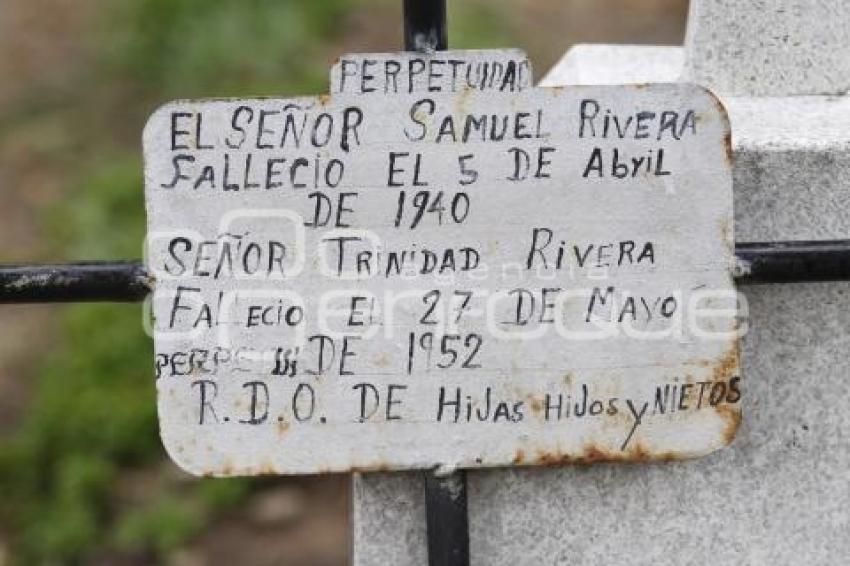 PERPETUIDAD
EL SEÑOR SAMUEL RIVERA
FALLECIO EL 5 DE AbRiL
DE 1940
SEÑOR TRINIDAD RIVERA
FALLECIO EL 27 DE MAYO
PERPE DE 1952
R.D.O. DE HiJAS HIJOS y NIETOS
agencia
enfoque